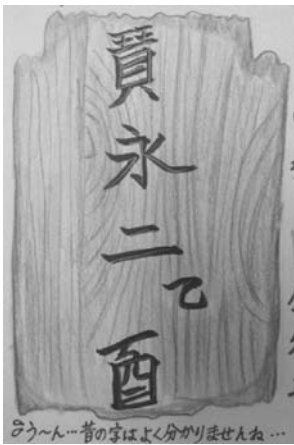 寳永二乙酉
う〜ん…昔の字はよく分かりませんね…